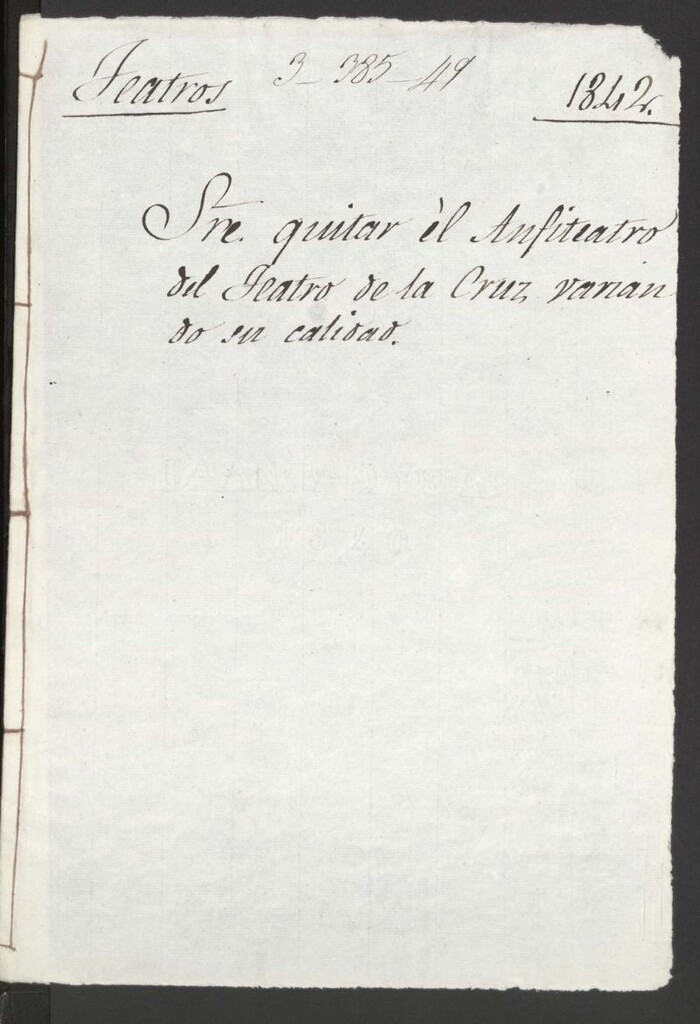 Teatros 3-385-49 1842.
Sre. quitar èl Anfiteatro
del Teatro de la Cruz varian
do su calidad.